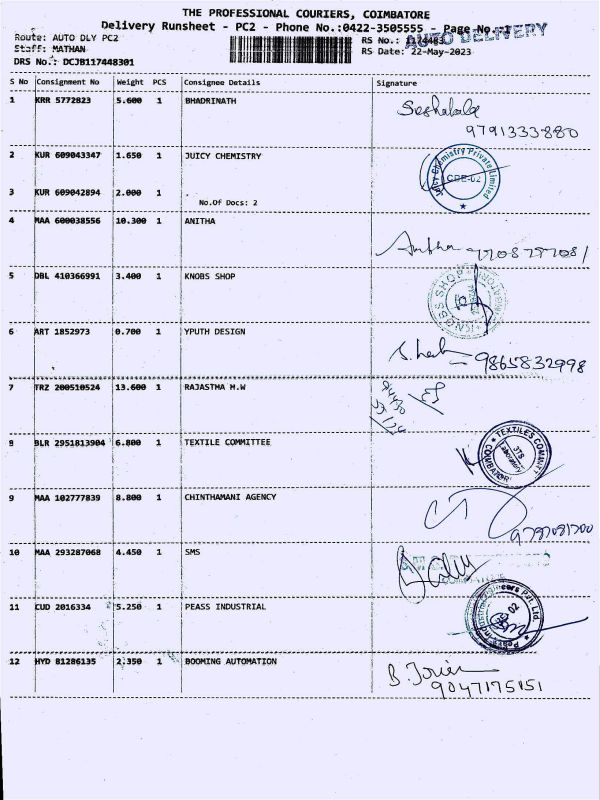 THE PROFESSIONAL COURIERS, COIMBATORE
Delivery Runsheet - PC2 - Phone No.:0422-3505555 - Page No.:1
AUTO DELIVERY
Route: AUTO DLY PC2
RS No.: 1174483
Staff: MATHAN
RS Date: 22-May-2023
DRS No.: DCJB117448301
S No Consignment No Weight PCS Consignee Details Signature
1 KRR 5772823 5.600 1 BHADRINATH
9791333880
2 KUR 609043347 1.650 1 JUICY CHEMISTRY
Juicy Chemistry Private Limited
CBE-02
3 KUR 609042894 2.000 1 .
No.Of Docs: 2
4 MAA 600038556 10.300 1 ANITHA
Anitha
5 DBL 410366991 3.400 1 KNOBS SHOP
KNOBS SHOP
6 ART 1852973 0.700 1 YPUTH DESIGN
9865832998
7 TRZ 200510524 13.600 1 RAJASTMA M.W
8 BLR 2951813904 6.800 1 TEXTILE COMMITTEE
TEXTILES COMMITTEE
Laboratory
COIMBATORE
9 MAA 102777839 8.800 1 CHINTHAMANI AGENCY
10 MAA 293287068 4.450 1 SMS
11 CUD 2016334 5.250 1 PEASS INDUSTRIAL
Peass Industrial Engineers Pvt. Ltd.
12 HYD 81286135 2.350 1 BOOMING AUTOMATION
9047175151